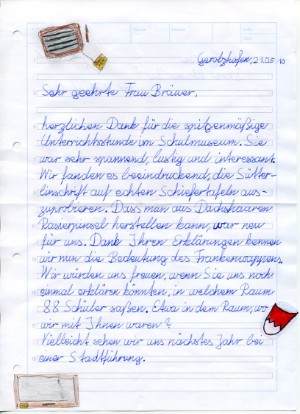 Gerolzhofen, 21.05.10
Sehr geehrte Frau Bräuer,
herzlichen Dank für die spitzenmäßige
Unterrichtsstunde im Schulmuseum. Sie
war sehr spannend, lustig und interessant.
Wir fanden es beeindruckend, die Sütter-
linschrift auf echten Schiefertafeln aus-
zuprobieren. Dass man aus Dachshaaren
Rasierpinsel herstellen kann, war neu
für uns. Dank Ihren Erklärungen kennen
wir nun die Bedeutung des Frankenwappens.
Wir würden uns freuen, wenn Sie uns noch
einmal erklären könnten, in welchem Raum
88 Schüler saßen. Etwa in dem Raum, wo
wir mit Ihnen waren?
Vielleicht sehen wir uns nächstes Jahr bei
einer Stadtführung.